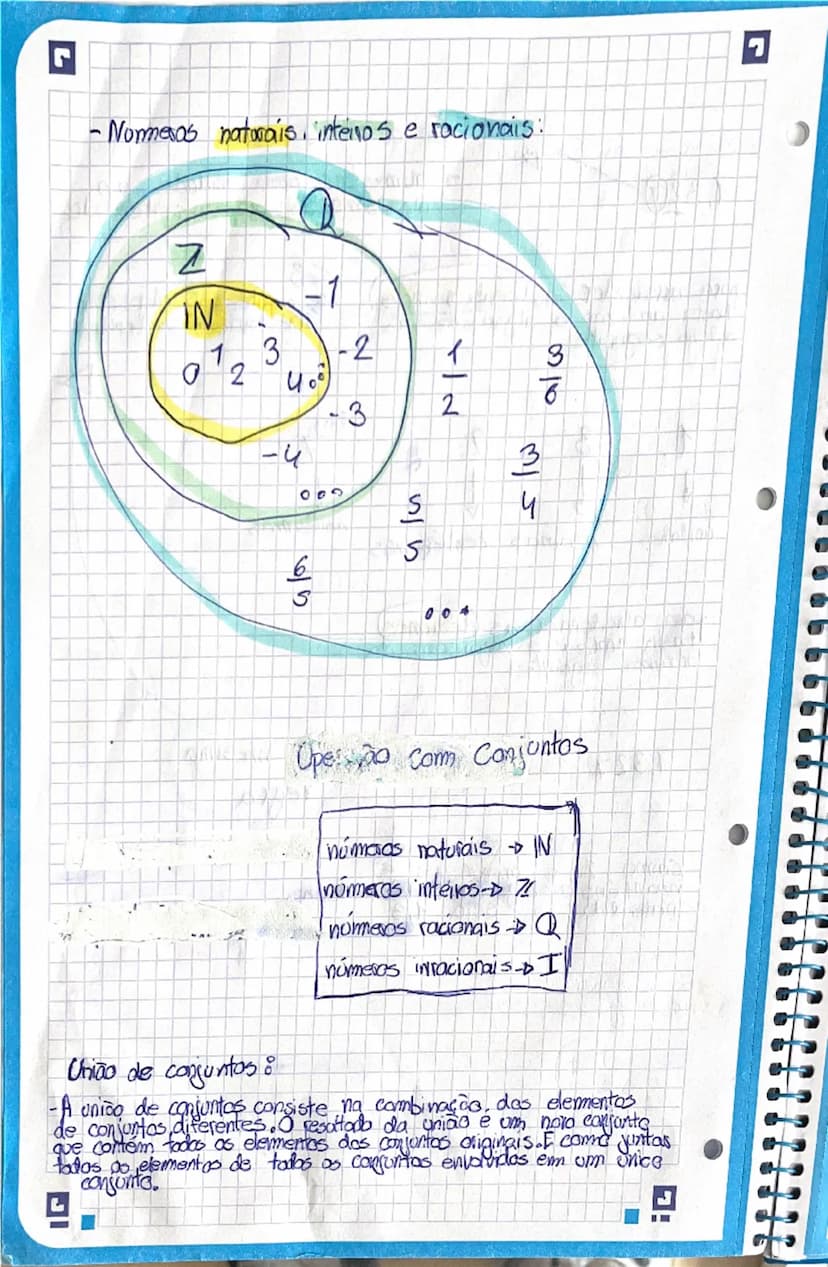 - Números naturais, inteiros e racionais:
Q
Z
-1
IN
0 1 2 3 4...
-2
-3
-4
...
1/2
3/6
3/4
5/5
6/5
...
Operação com Conjuntos
números naturais → IN
números inteiros → Z
números racionais → Q
números irracionais → I
União de conjuntos:
- A união de conjuntos consiste na combinação, dos elementos
de conjuntos diferentes. O resultado da união é um novo conjunto
que contém todos os elementos dos conjuntos originais. É como juntas
todos os elementos de todos os conjuntos envolvidos em um único
conjunto.